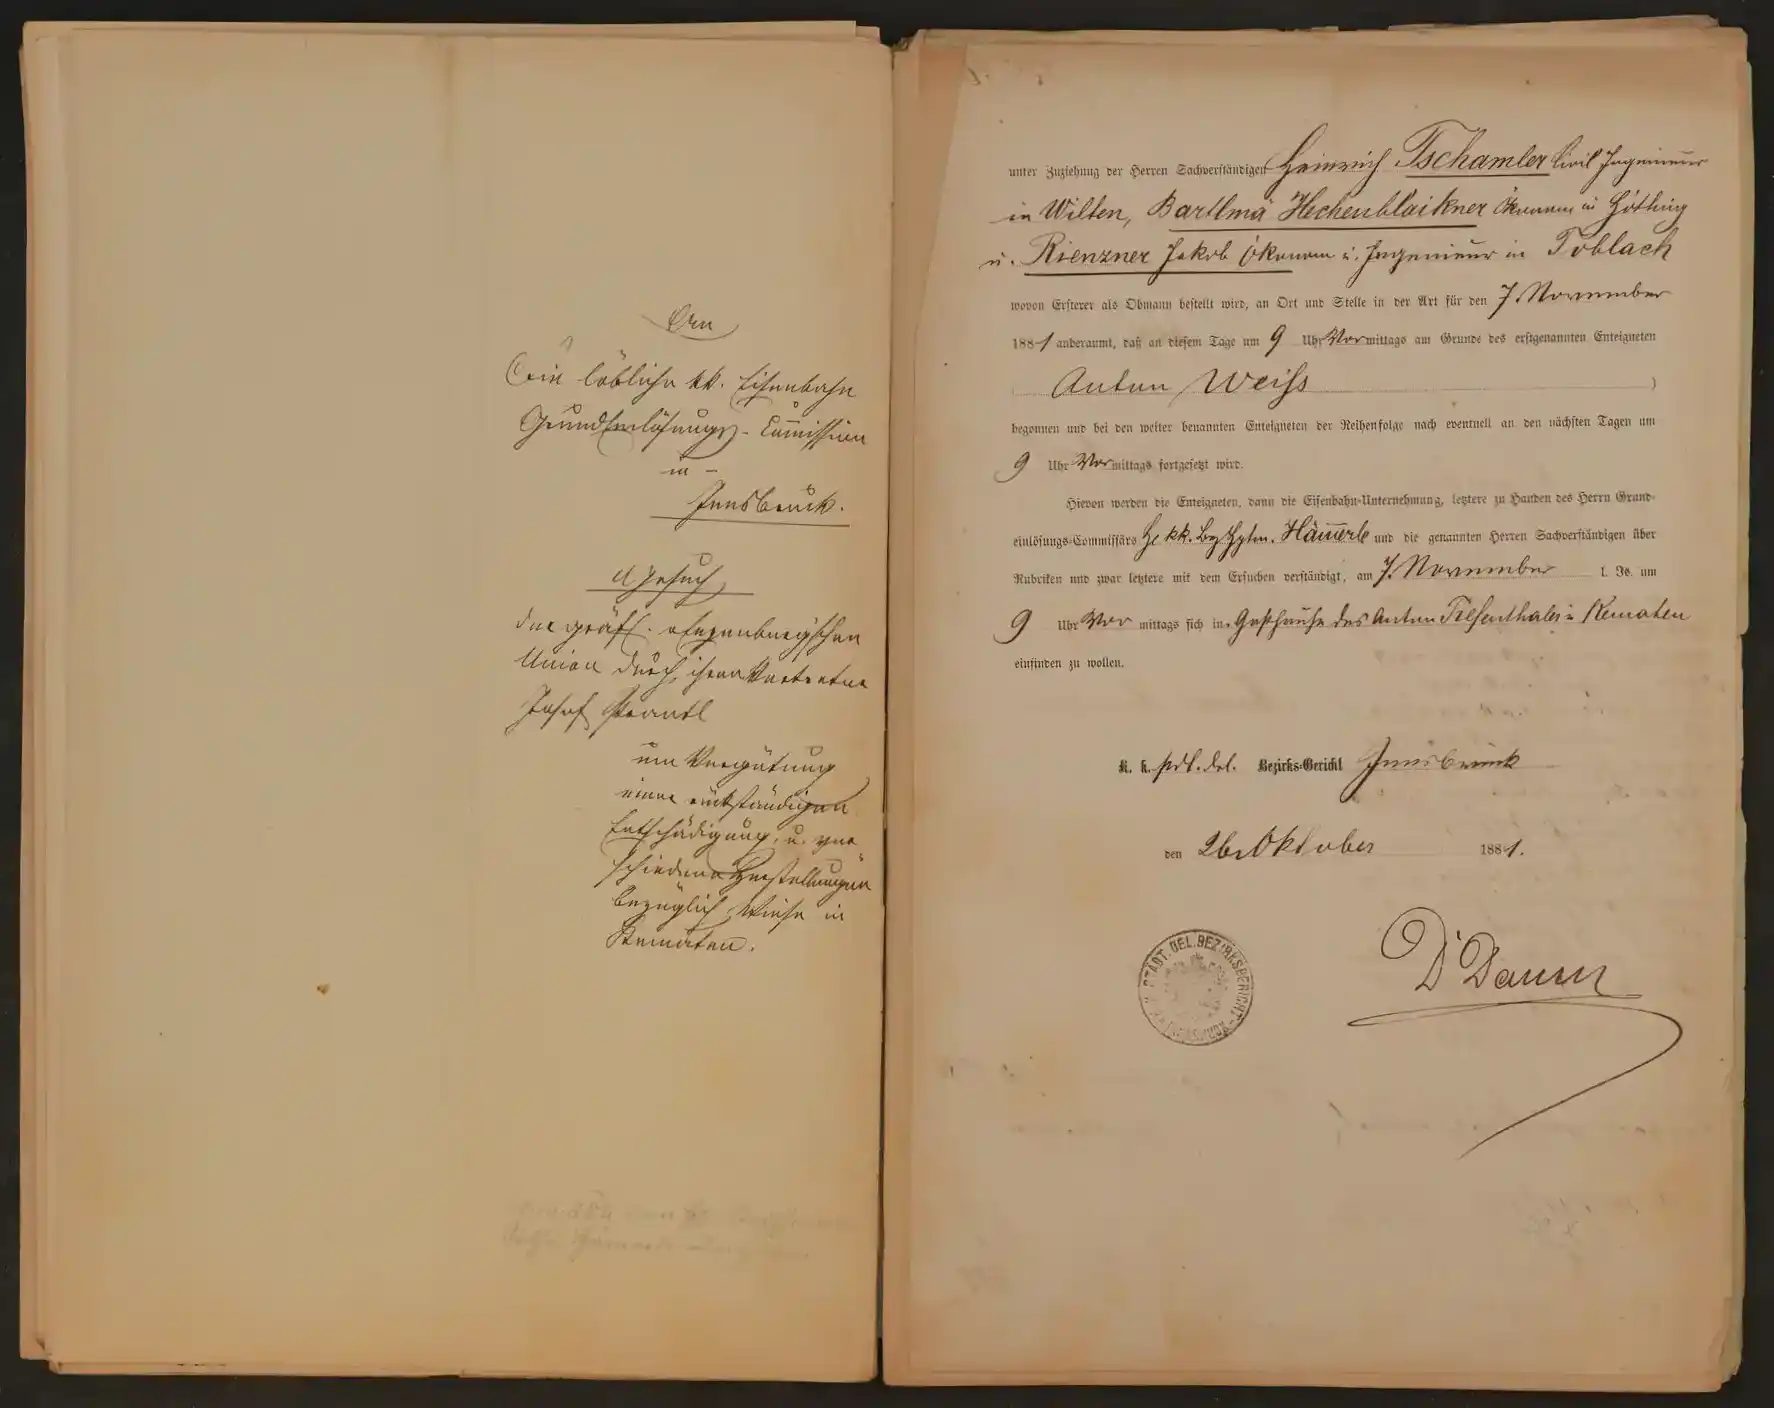 An
Eine löbliche kk. Eisenbahn
Grundeinlösungs-Com̅ission
in
Innsbruck.
Gesuch
der gräfl.
Union durch ihren Vertreter
Josef
um Vergütung
einer rückständigen
Entschädigung, u. ver
schiedene Herstellungen
bezüglich Wiese in
Kematen.
unter Zuziehung der Herren Sachverständigen Heinrich Tschamler Civil Ingenieur
in Wilten, Bartlmä Hechenblaikner Ökonom in Hötting
u. Rienzner Jakob Ökonom u. Ingenieur in Toblach
wovon Ersterer als Obmann bestellt wird, an Ort und Stelle in der Art für den 7. November
1881 anberaumt, daß an diesem Tage um 9 Uhr Vormittags am Grunde des erstgenannten Enteigneten
( Anton Weiss )
begonnen und bei den weiter benannten Enteigneten der Reihenfolge nach eventuell an den nächsten Tagen um
9 Uhr Vormittags fortgesetzt wird.
Hievon werden die Enteigneten, dann die Eisenbahn-Unternehmung, letztere zu Handen des Herrn Grund-
einlösungs-Commissärs H kk. Bz Hptm. Häm̅erle und die genannten Herren Sachverständigen über
Rubriken und zwar letztere mit dem Ersuchen verständigt, am 7. November l. Js. um
9 Uhr Vor mittags sich in Gasthause des Anton Tiefenthaler in Kematen
einfinden zu wollen.
K. k. städt. del. Bezirks-Gericht Innsbruck
den 26. Oktober 1881.
STÄDT. DEL. BEZIRKSGERICHT INNSBRUCK